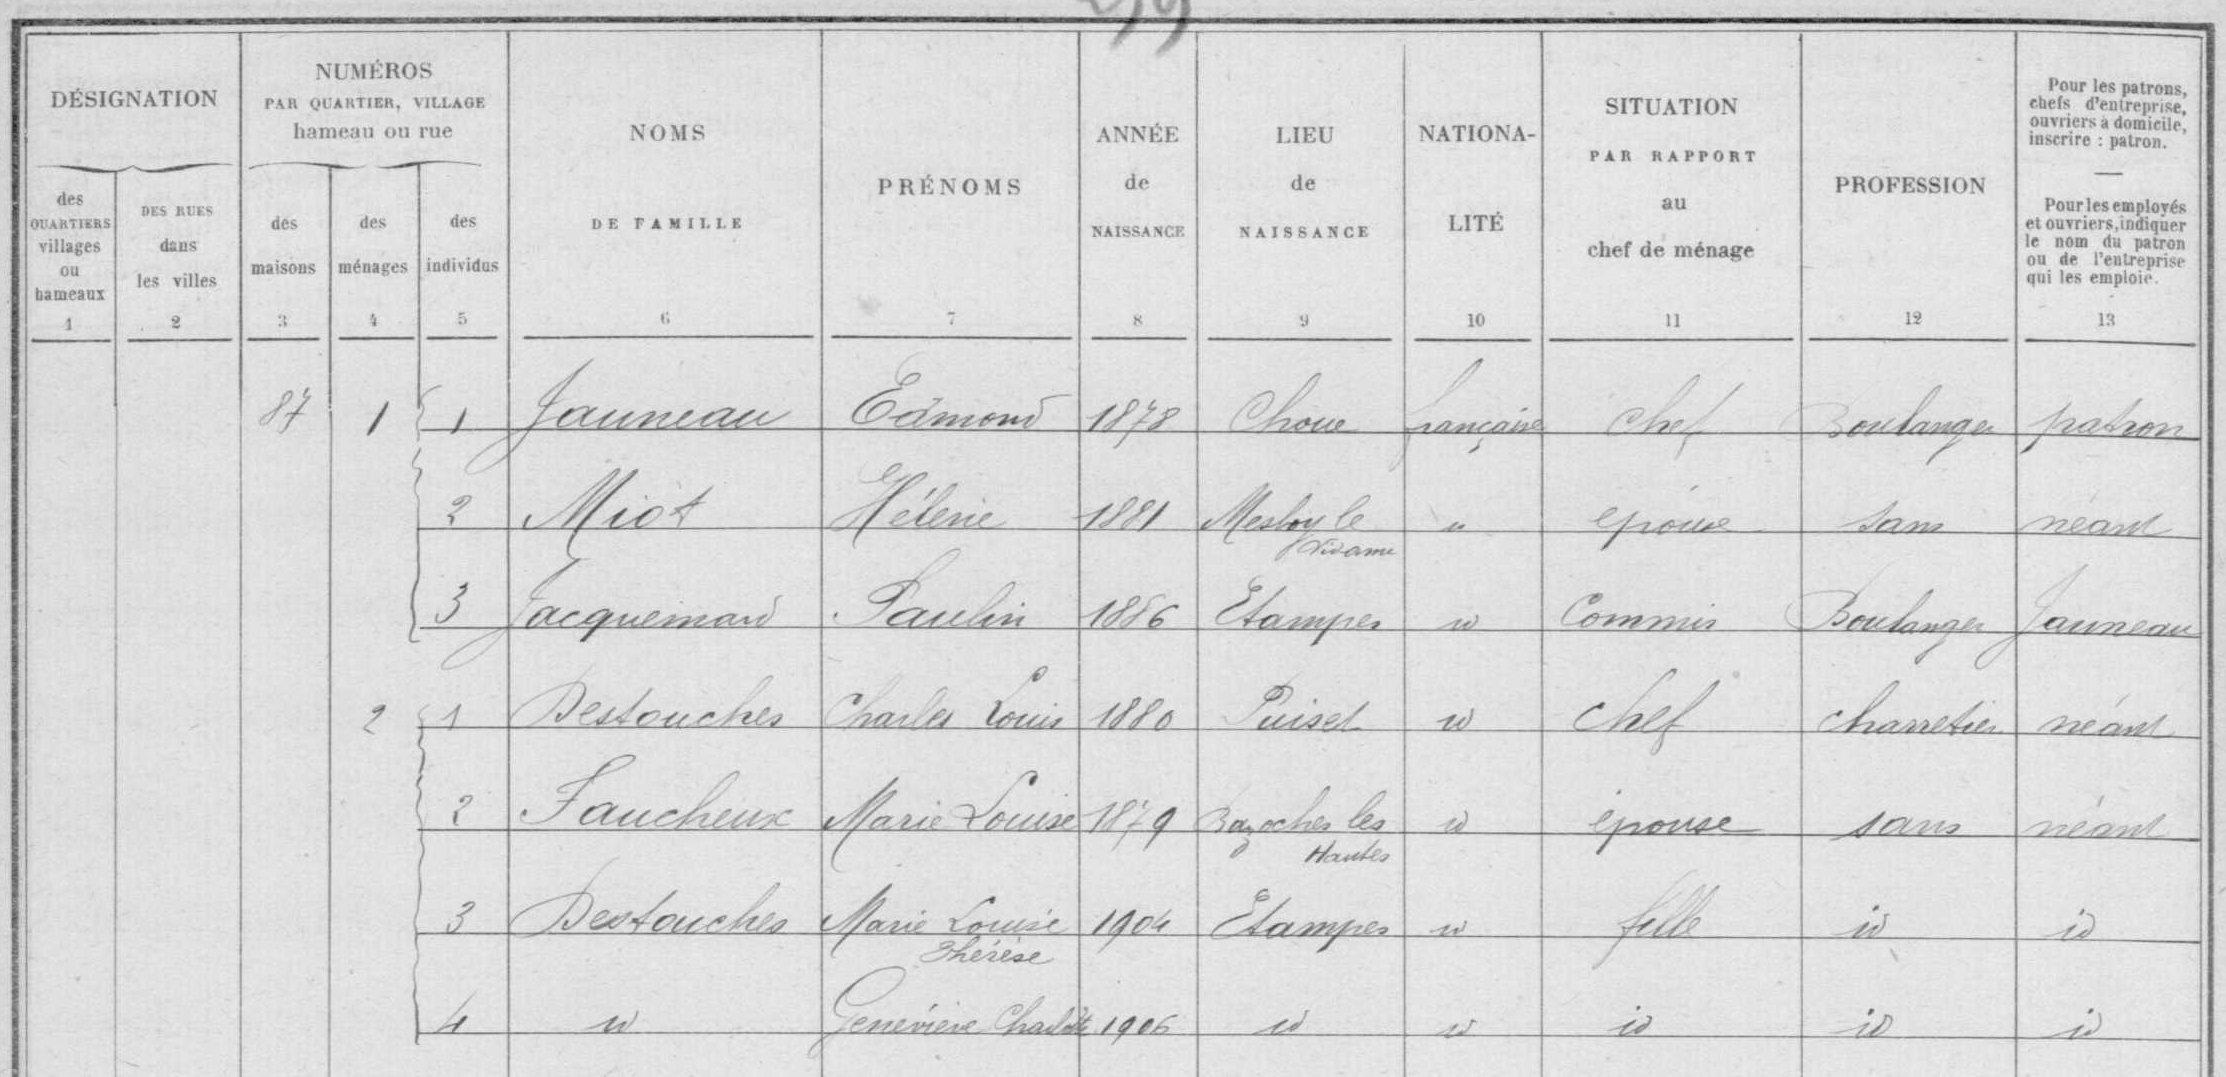 DÉSIGNATION
des QUARTIERS villages ou hameaux
1
DES RUES dans les villes
2
NUMÉROS
PAR QUARTIER, VILLAGE
hameau ou rue
des maisons
3
des ménages
4
des individus
5
NOMS
DE FAMILLE
6
PRÉNOMS
7
ANNÉE
de
NAISSANCE
8
LIEU
de
NAISSANCE
9
NATIONA-
LITÉ
10
SITUATION
PAR RAPPORT
au
chef de ménage
11
PROFESSION
12
Pour les patrons,
chefs d'entreprise,
ouvriers à domicile,
inscrire : patron.
—
Pour les employés
et ouvriers, indiquer
le nom du patron
ou de l'entreprise
qui les emploie.
13
87 1 1 Jauneau Edmond 1878 Choue française chef Boulanger patron
2 Miot Hélène 1881 Meslay le Vidame " épouse sans néant
3 Jacquemard Paulin 1886 Etampes id Commis Boulanger Jauneau
2 1 Destouches Charles Louis 1880 Puiset id chef charretier néant
2 Faucheux Marie Louise 1879 Bazoches les Hautes id épouse sans néant
3 Destouches Marie Louise Thérèse 1904 Etampes id fille id id
4 id Geneviève Charlotte 1906 id id id id id